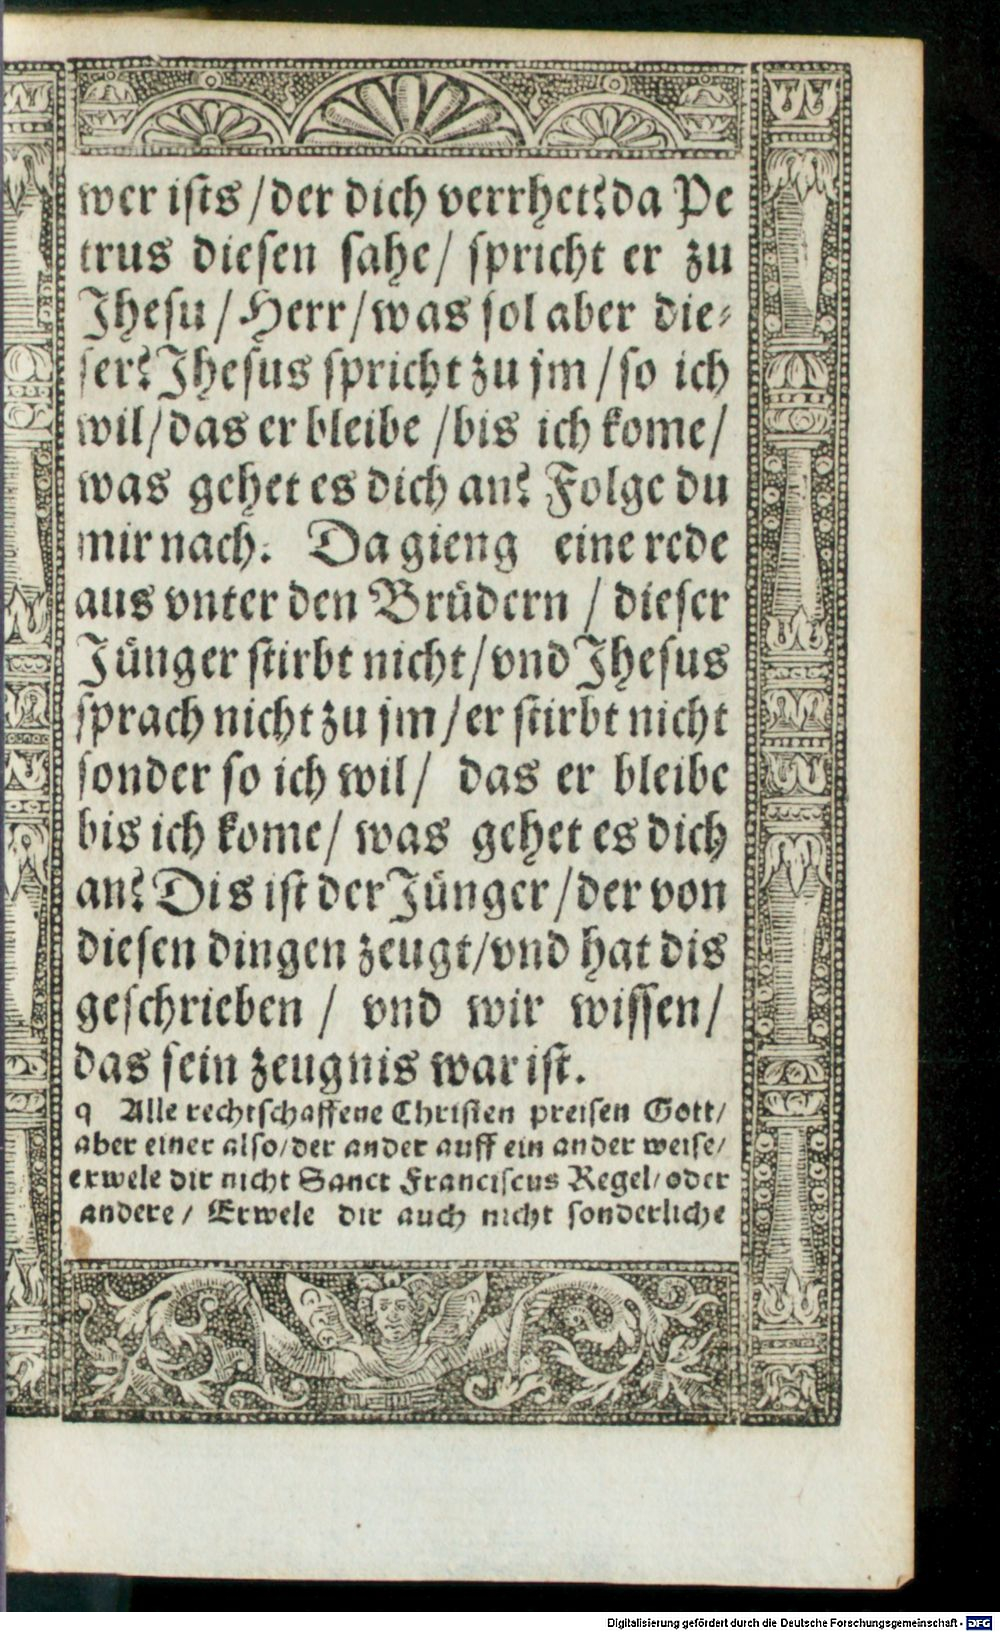 wer ists / der dich verrhet? da Pe
trus diesen sahe / spricht er zu
Jhesu / Herr / was sol aber die⸗
ser? Jhesus spricht zu jm / so ich
wil / das er bleibe / bis ich kome /
was gehet es dich an? Folge du
mir nach. Da gieng eine rede
aus vnter den Brüdern / dieser
Jünger stirbt nicht / vnd Jhesus
sprach nicht zu jm / er stirbt nicht
sonder so ich wil / das er bleibe
bis ich kome / was gehet es dich
an? Dis ist der Jünger / der von
diesen dingen zeugt / vnd hat dis
geschrieben / vnd wir wissen /
das sein zeugnis war ist.
q Alle rechtschaffene Christen preisen Gott /
aber einer also / der ander auff ein ander weise /
erwele dir nicht Sanct Franciscus Regel / oder
andere / Erwele dir auch nicht sonderliche
Digitalisierung gefördert durch die Deutsche Forschungsgemeinschaft - DFG